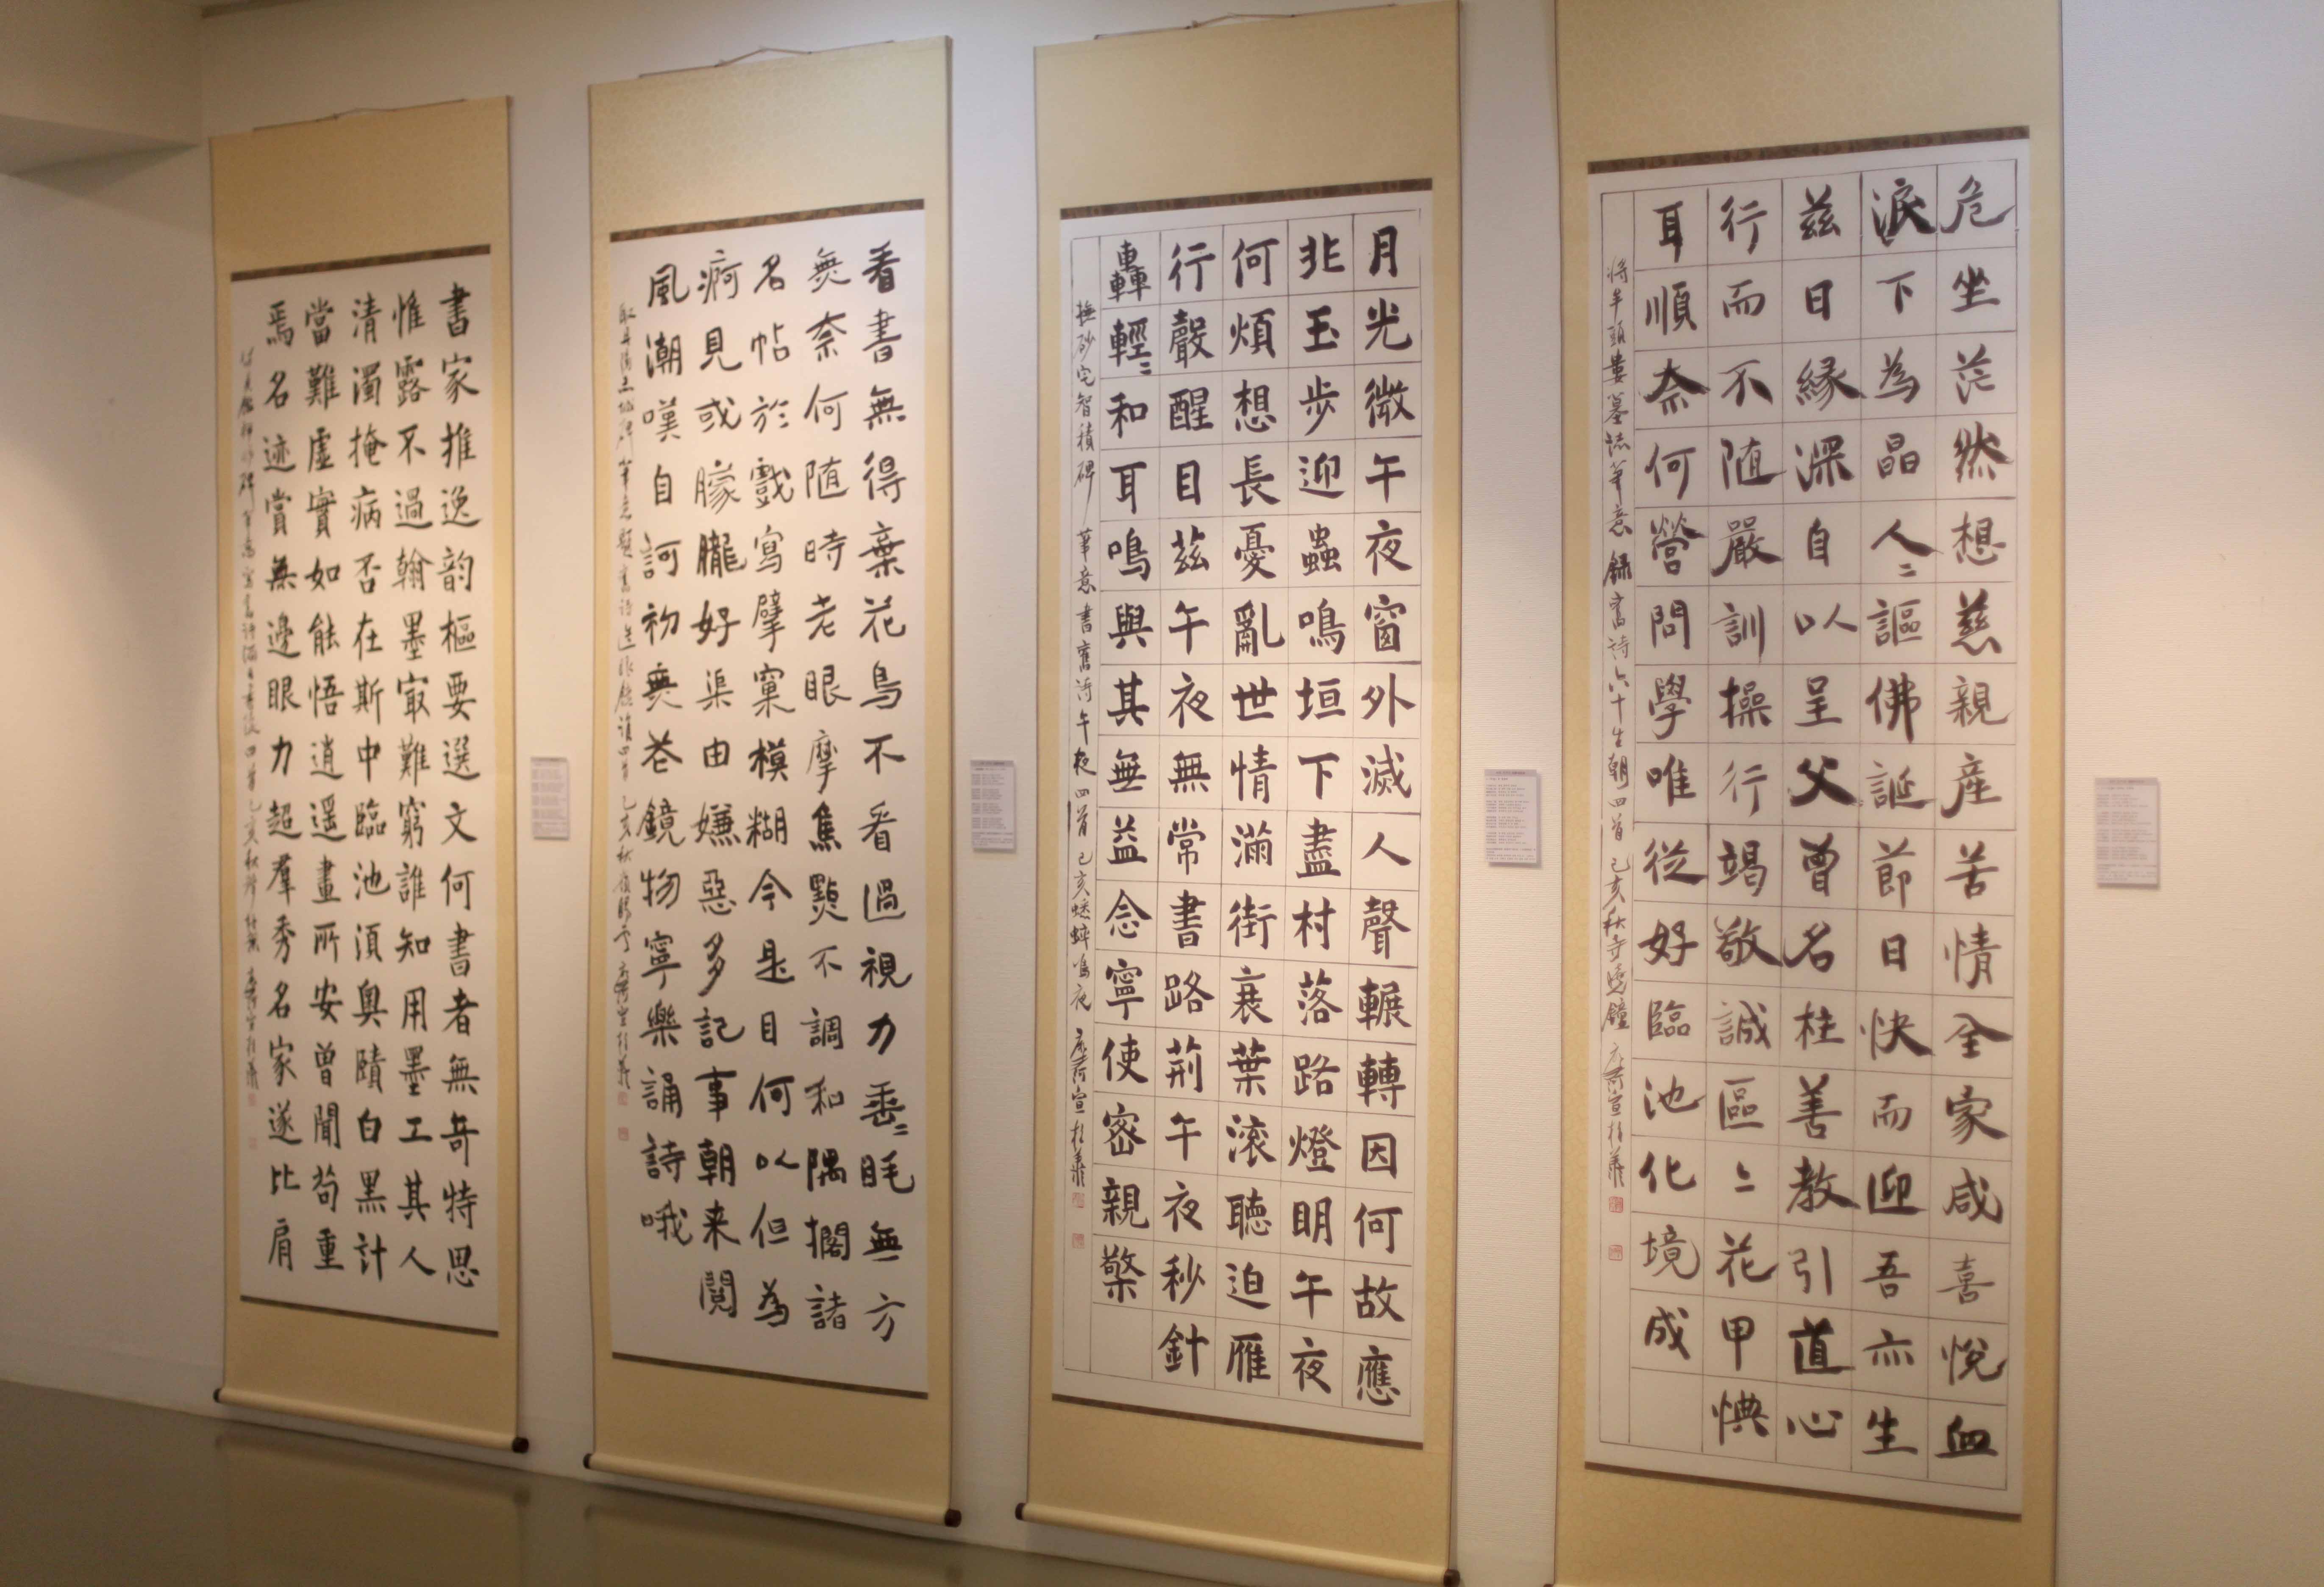 危坐茫然想慈親産苦情全家咸喜悅血
淚下為晶人〻謳佛誕節日快而迎吾亦生
茲日緣深自以呈父曾名柱善教引道心
行而不随嚴訓操行竭敬誠區〻花甲惧
耳順奈何營問學唯從好臨池化境成
將牟頭婁墓誌筆意錄舊詩六十生朝四首己亥秋寺曉鐘
月光微午夜窗外滅人聲輾轉因何故應
非玉步迎蟲鳴垣下盡村落路燈明午夜
何煩想長憂亂世情滿街衰葉滾聽迫雁
行聲醒目茲午夜無常書路荊午夜秒針
轟輕〻和耳鳴與其無益念寧使密親檠
撫砂宅智積碑筆意書舊詩午夜四首己亥蟋蟀鳴夜
看書無得棄花鳥不看過視力垂〻眊無方
無奈何随時老眼摩焦點不調和隅擱諸
名帖於戲寫擘窠模糊今是目何以但為
痾見或朦朧好渠由嫌惡多記事朝来閱
風潮嘆自訶初無花鏡物寧樂誦詩哦
書家推逸韵樞要選文何書者無奇特思
惟露不過翰墨㝡難窮誰知用墨工其人
清濁掩病否在斯中臨池須奧賾白黑計
當難虛實如能悟逍遥畫所安曾聞苟重
焉名迹賞無邊眼力超羣秀名家遂比肩